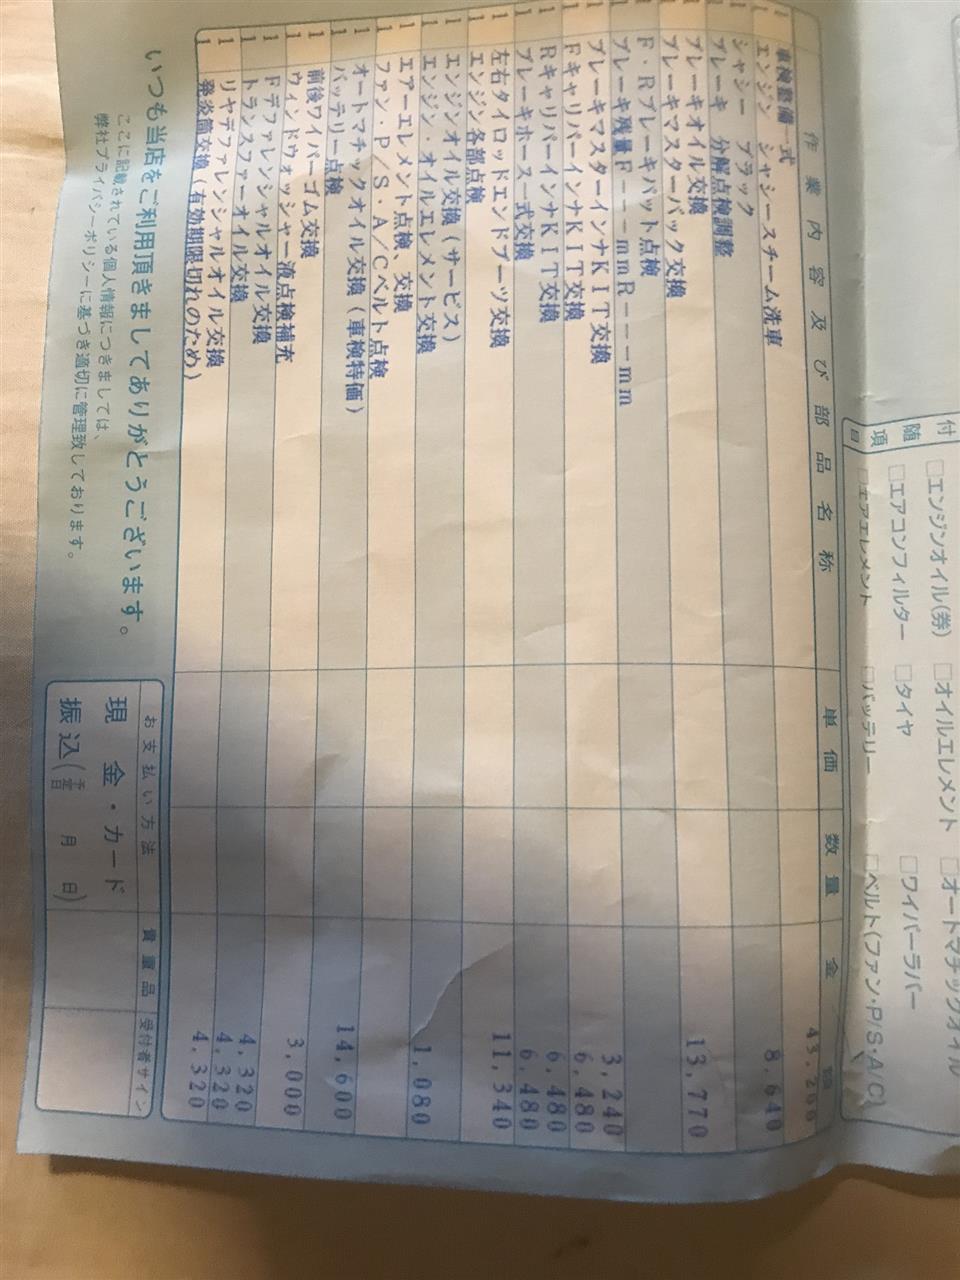 付随項目 □エンジンオイル(券) □オイルエレメント □オートマチックオイル
□エアコンフィルター □タイヤ □ワイパーラバー
□エアエレメント □バッテリー □ベルト(ファン・P/S・A/C)
作業内容及び部品名称 単価 数量 金額
1 車検整備一式 43,200
1 エンジン シャシースチーム洗車
1 シャシー ブラック 8,640
1 ブレーキ 分解点検調整
1 ブレーキオイル交換
1 ブレーキマスターバック交換 13,770
1 F・Rブレーキパット点検
1 ブレーキ残量F---mmR---mm
1 ブレーキマスターインナKIT交換 3,240
1 FキャリパーインナKIT交換 6,480
1 RキャリパーインナKIT交換 6,480
1 ブレーキホース一式交換 6,480
1 左右タイロッドエンドブーツ交換 11,340
1 エンジン各部点検
1 エンジンオイル交換(サービス)
1 エンジン・オイルエレメント交換 1,080
1 エアーエレメント点検、交換
1 ファン・P/S・A/Cベルト点検
1 オートマチックオイル交換(車検特価) 14,600
1 バッテリー点検
1 前後ワイパーゴム交換 3,000
1 ウィンドウォッシャー液点検補充
1 Fデファレンシャルオイル交換 4,320
1 トランスファーオイル交換 4,320
1 リヤデファレンシャルオイル交換 4,320
1 発炎筒交換(有効期限切れのため)
いつも当店をご利用頂きましてありがとうございます。
ここに記載されている個人情報につきましては、
弊社プライバシーポリシーに基づき適切に管理致しております。
お支払い方法 貴重品 受付者サイン
現金・カード
振込(予定日 月 日)